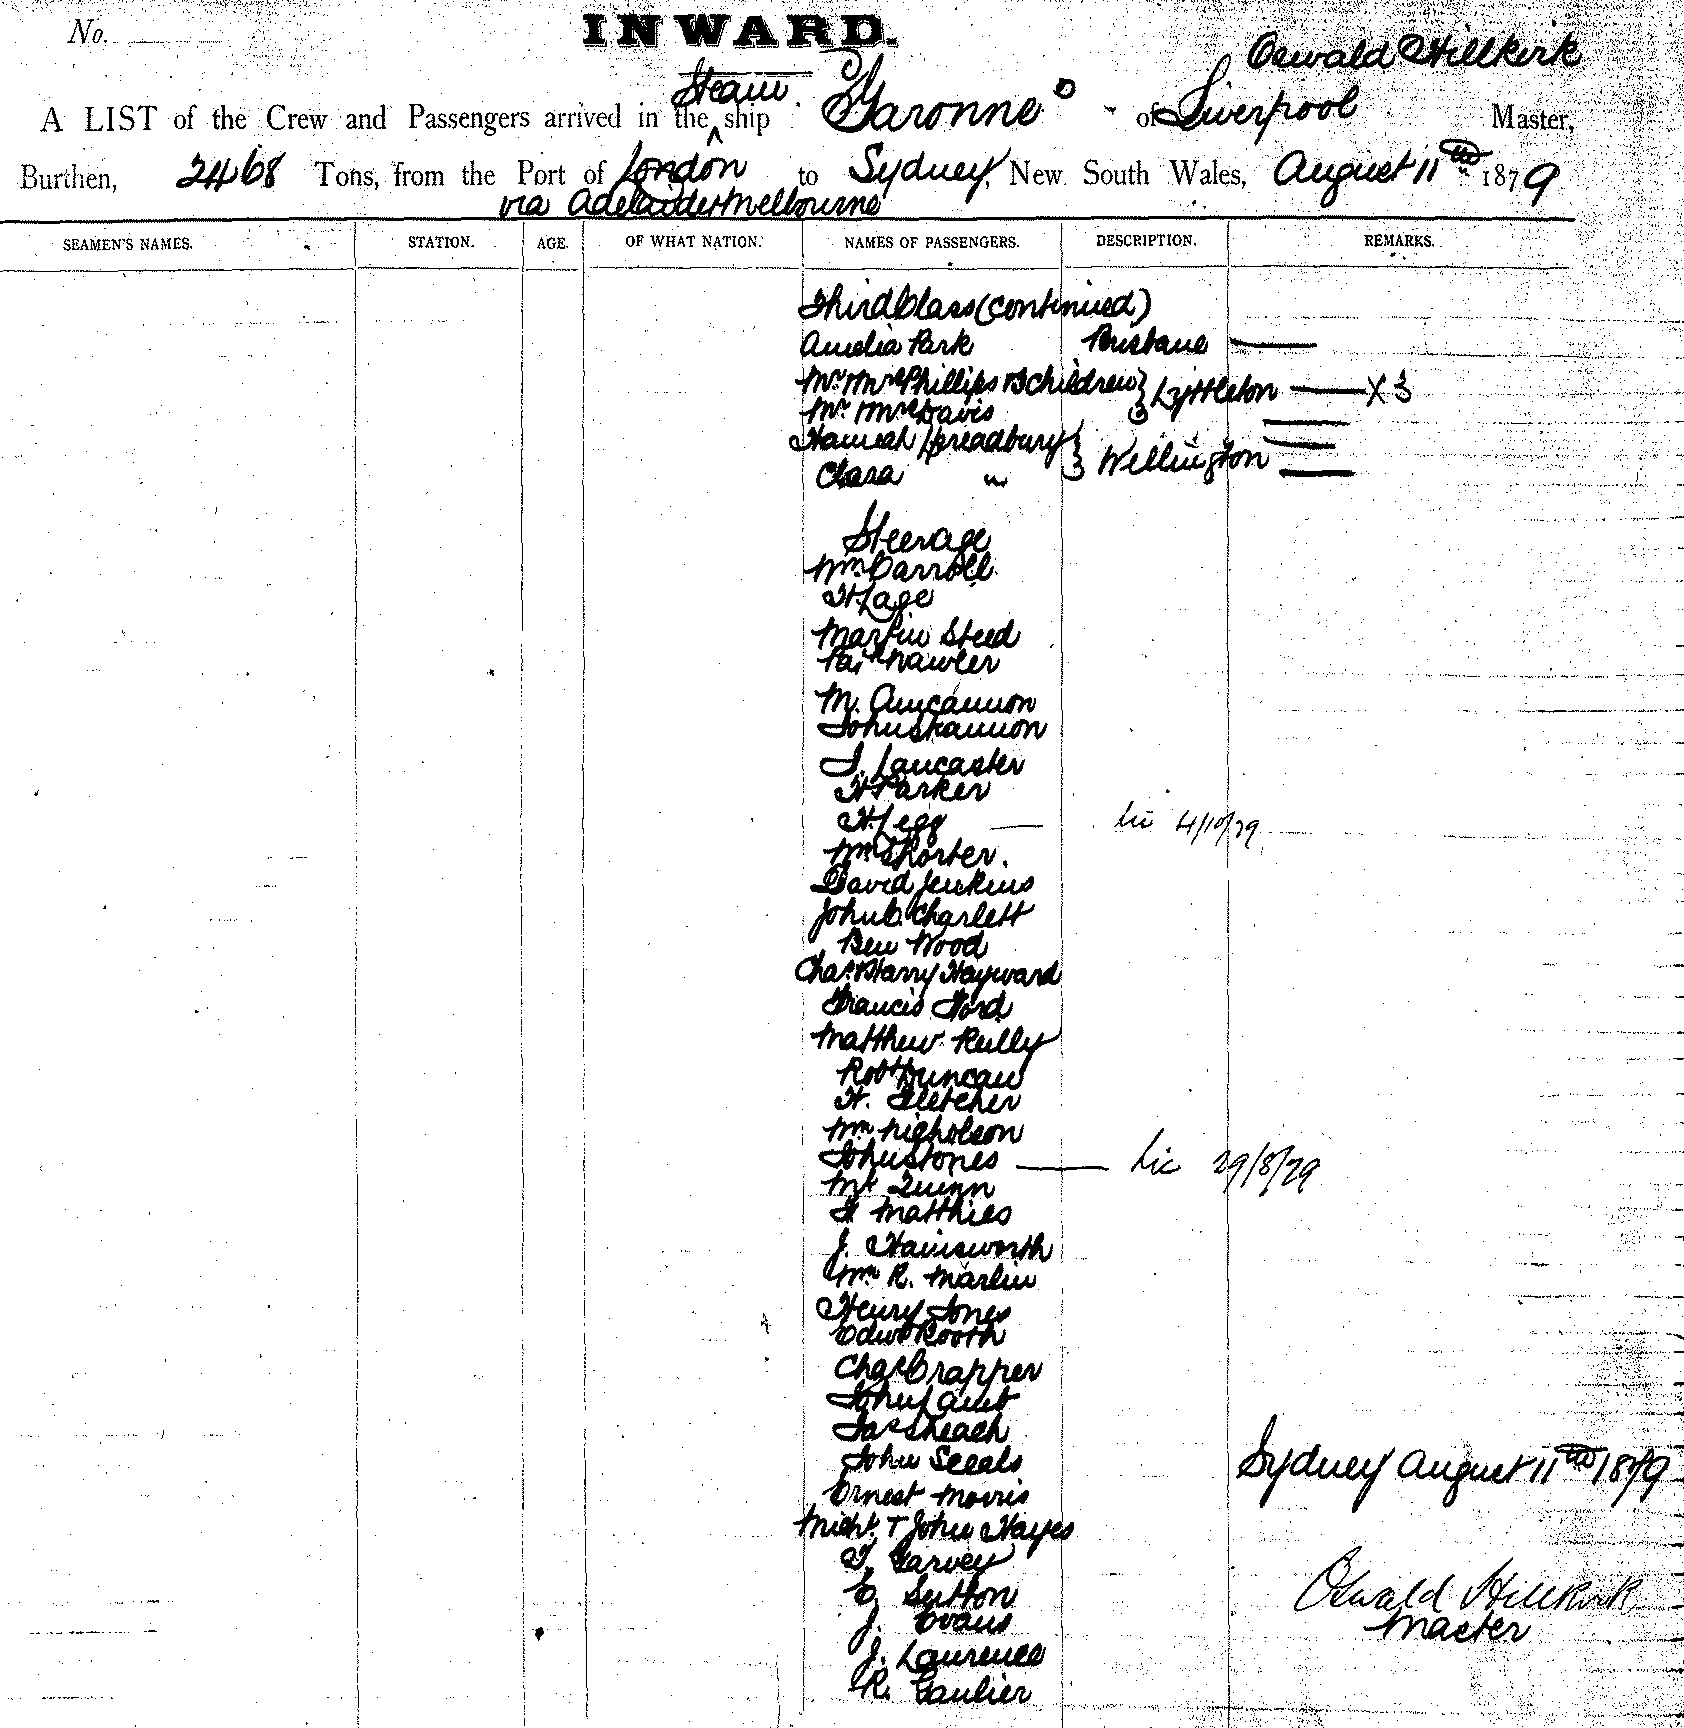 No.
INWARD.
Oswald Hillkirk
A LIST of the Crew and Passengers arrived in the Steam ship Garonne of Liverpool Master,
Burthen, 2468 Tons, from the Port of London to Sydney, New South Wales, August 11th 1879
via Adelaide & Melbourne
SEAMEN'S NAMES. STATION. AGE. OF WHAT NATION. NAMES OF PASSENGERS. DESCRIPTION. REMARKS.
Third Class (continued)
Amelia Park Brisbane
Mr. Mrs Phillips & 3 children } Lyttleton X 3
Mr. Mrs Davis
Hannah Spreadbury } Wellington
Clara "
Steerage
Wm. Carroll
H Lage
Martin Steed
Pat Nawler
M. Amcannon
John Shannon
J. Lancaster
H Parker
H. Legg lic 4/10/79
Wm Shorter.
David Jenkins
John C. Charlett
Ben Wood
Chas. Harry Hayward
Francis Ford
Matthew Reilly
Robt Duncan
H. Fletcher
Wm Nicholson
John Jones Lic 29/8/79
Mr Quinn
H Matthies
J. Hainsworth
Wm R. Marlin
Henry Jones
Edwd Booth
Chas Crapper
John Gaut
Jas Sheach
John Seeals
Sydney August 11th 1879
Ernest Morris
Michl. & John Hayes
T. Garvey
E. Sutton
Oswald Hillkirk
J. Evans
Master
J. Laurence
R. Gaulier